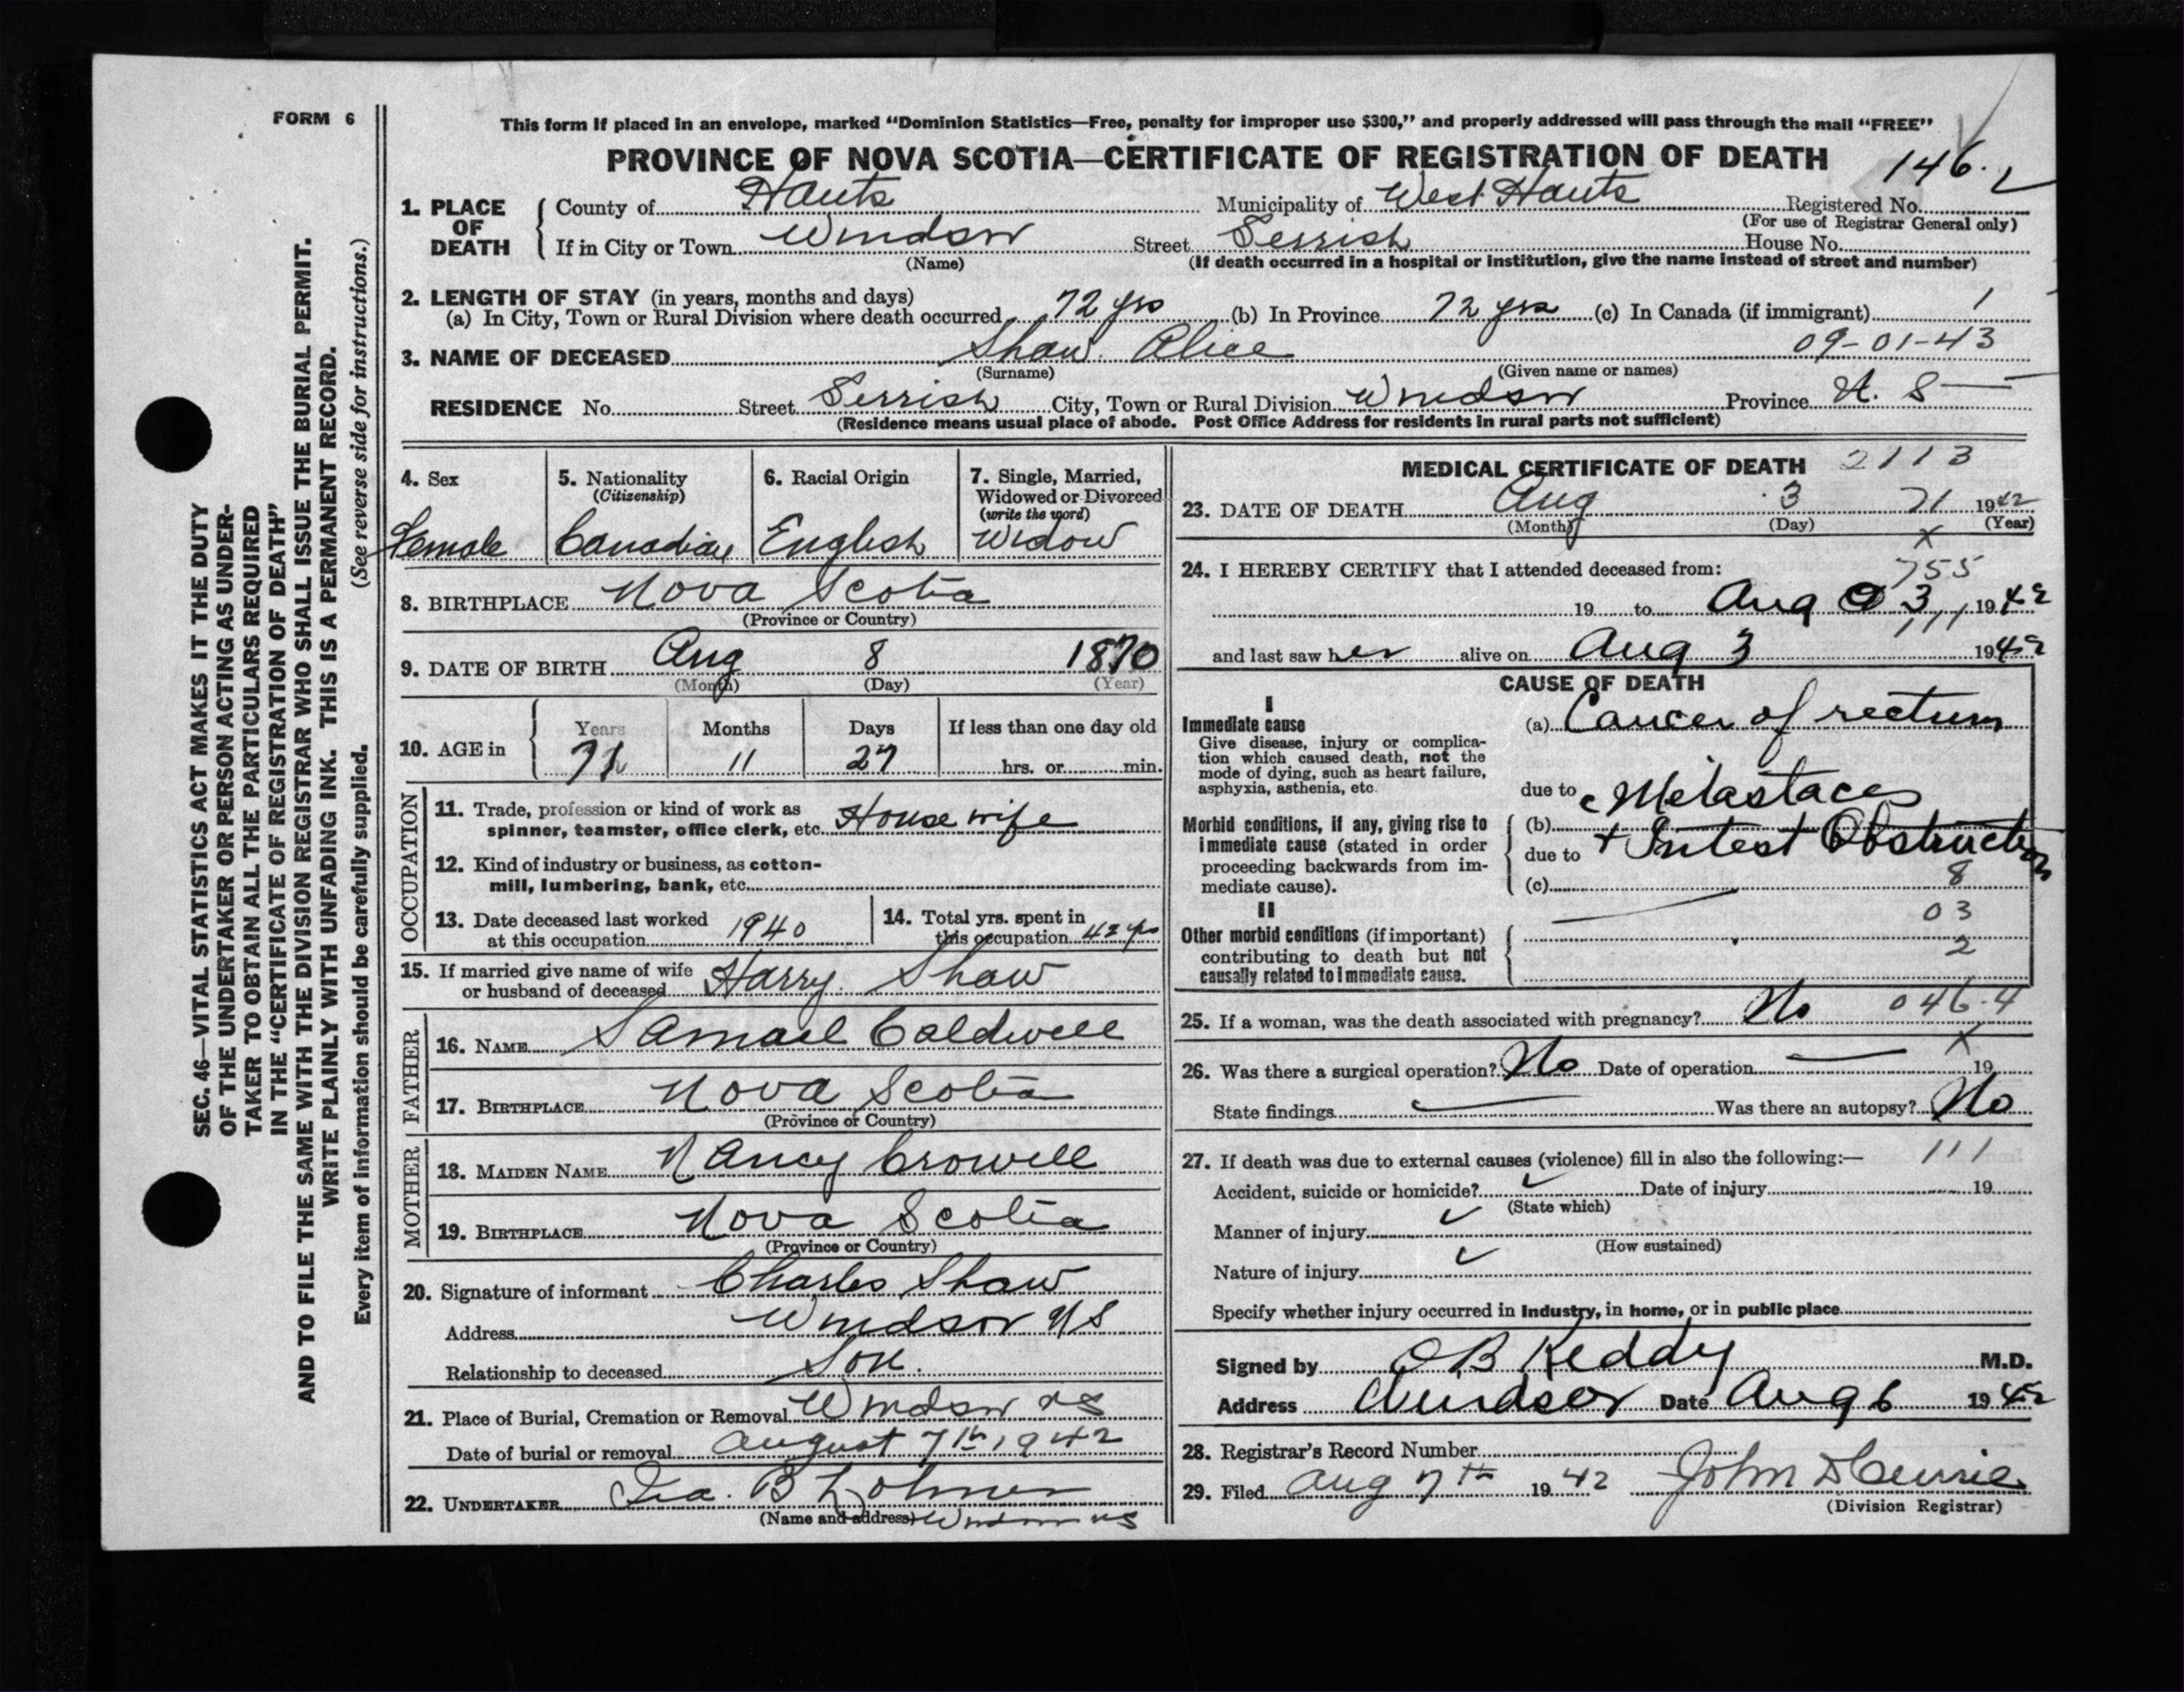 FORM 6
This form if placed in an envelope, marked "Dominion Statistics—Free, penalty for improper use $300," and properly addressed will pass through the mail "FREE"
PROVINCE OF NOVA SCOTIA—CERTIFICATE OF REGISTRATION OF DEATH
146.
1. PLACE OF DEATH
County of Hants Municipality of West Hants Registered No.
(For use of Registrar General only)
If in City or Town Windsor Street Gerrish House No.
(Name) (If death occurred in a hospital or institution, give the name instead of street and number)
2. LENGTH OF STAY (in years, months and days)
(a) In City, Town or Rural Division where death occurred 72 yrs (b) In Province 72 yrs (c) In Canada (if immigrant) 1
3. NAME OF DECEASED Shaw Alice 09-01-43
(Surname) (Given name or names)
RESIDENCE No. Street Gerrish City, Town or Rural Division Windsor Province N. S
(Residence means usual place of abode. Post Office Address for residents in rural parts not sufficient)
4. Sex
Female
5. Nationality
(Citizenship)
Canadian
6. Racial Origin
English
7. Single, Married,
Widowed or Divorced
(write the word)
Widow
8. BIRTHPLACE Nova Scotia
(Province or Country)
9. DATE OF BIRTH Aug 8 1870
(Month) (Day) (Year)
10. AGE in
Years Months Days If less than one day old
71 11 27 hrs. or min.
OCCUPATION
11. Trade, profession or kind of work as
spinner, teamster, office clerk, etc. House wife
12. Kind of industry or business, as cotton-
mill, lumbering, bank, etc.
13. Date deceased last worked
at this occupation 1940
14. Total yrs. spent in
this occupation 42 yrs
15. If married give name of wife
or husband of deceased Harry Shaw
FATHER
16. NAME Samuel Caldwell
17. BIRTHPLACE Nova Scotia
(Province or Country)
MOTHER
18. MAIDEN NAME Nancy Crowell
19. BIRTHPLACE Nova Scotia
(Province or Country)
20. Signature of informant Charles Shaw
Address Windsor NS
Relationship to deceased Son.
21. Place of Burial, Cremation or Removal Windsor NS
Date of burial or removal August 7th 1942
22. UNDERTAKER B
(Name and address) Windsor NS
MEDICAL CERTIFICATE OF DEATH 2113
23. DATE OF DEATH Aug 3 71 1942
(Month) (Day) (Year)
x
24. I HEREBY CERTIFY that I attended deceased from: 755
19 to Aug 3 1942
111
and last saw her alive on Aug 3 1942
CAUSE OF DEATH
I
Immediate cause
Give disease, injury or complica-
tion which caused death, not the
mode of dying, such as heart failure,
asphyxia, asthenia, etc.
(a) Cancer of rectum
due to c Metastaces
Morbid conditions, if any, giving rise to
immediate cause (stated in order
proceeding backwards from im-
mediate cause).
(b)
due to + Intest Obstruction
(c) 8
II
03
Other morbid conditions (if important)
contributing to death but not
causally related to immediate cause.
2
25. If a woman, was the death associated with pregnancy? No 046.4
x
26. Was there a surgical operation? No Date of operation 19
State findings Was there an autopsy? No
27. If death was due to external causes (violence) fill in also the following:— 111
Accident, suicide or homicide? Date of injury 19
(State which)
Manner of injury
(How sustained)
Nature of injury
Specify whether injury occurred in Industry, in home, or in public place
Signed by O B Keddy M.D.
Address Windsor Date Aug 6 1942
28. Registrar's Record Number
29. Filed Aug 7th 1942 John
(Division Registrar)
SEC. 46—VITAL STATISTICS ACT MAKES IT THE DUTY
OF THE UNDERTAKER OR PERSON ACTING AS UNDER-
TAKER TO OBTAIN ALL THE PARTICULARS REQUIRED
IN THE "CERTIFICATE OF REGISTRATION OF DEATH"
AND TO FILE THE SAME WITH THE DIVISION REGISTRAR WHO SHALL ISSUE THE BURIAL PERMIT.
WRITE PLAINLY WITH UNFADING INK. THIS IS A PERMANENT RECORD.
Every item of information should be carefully supplied. (See reverse side for instructions.)